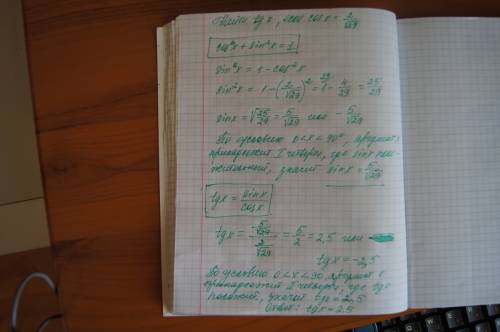 Найти tg x, если cos x = 2/√29
cos²x + sin²x = 1
sin²x = 1 - cos²x
sin²x = 1 - (2/√29)² = 1 - 4/29 = 25/29
sin x = √25/29 = 5/√29 или - 5/√29
По условию 0 < x < 90°,
принадлежит I четверти, где sin x поло-
жительный, значит sin x = 5/√29
tg x = sin x / cos x
tg x = 5/√29 / 2/√29 = 5/2 = 2,5 или
tg x = -2,5
По условию 0 < x < 90,
принадлежит I четверти, где tg x
положит, значит tg x = 2,5
Ответ: tg x = 2,5